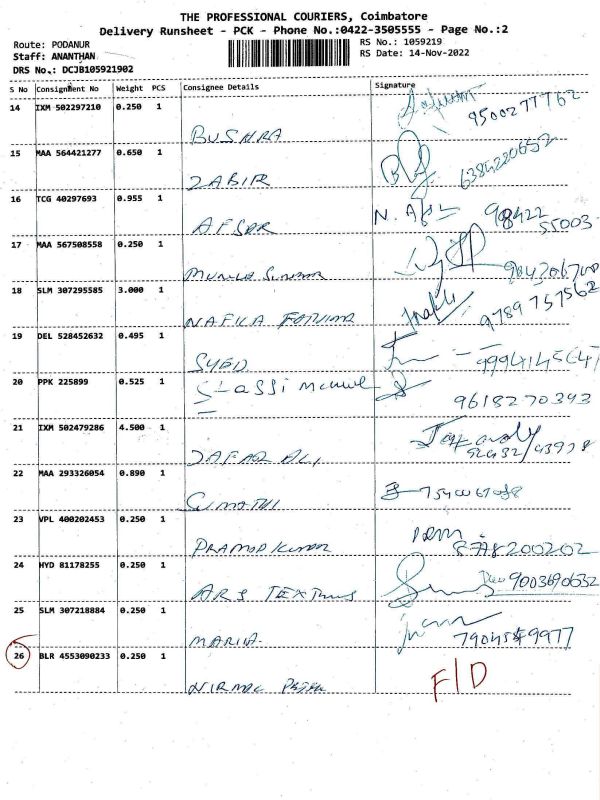 THE PROFESSIONAL COURIERS, Coimbatore
Delivery Runsheet - PCK - Phone No.:0422-3505555 - Page No.:2
Route: PODANUR
RS No.: 1059219
Staff: ANANTHAN
RS Date: 14-Nov-2022
DRS No.: DCJB105921902
S No Consignment No Weight PCS Consignee Details Signature
14 IXM 502297210 0.250 1
BUSHRA 9500277762
15 MAA 564421277 0.650 1
ZABIR 6384220652
16 TCG 40297693 0.955 1
AFSAR 98422 55003
17 MAA 567508558 0.250 1
18 SLM 307295585 3.000 1
NAFILA FATHIMA 9789757562
19 DEL 528452632 0.495 1
SYED
20 PPK 225899 0.525 1
9618270393
21 IXM 502479286 4.500 1
JAFAR ALI
22 MAA 293326054 0.890 1
23 VPL 400202453 0.250 1
PRAMOD KUMAR 8778200202
24 HYD 81178255 0.250 1
ARS 9003690632
25 SLM 307218884 0.250 1
MARIA
26 BLR 4553090233 0.250 1
NIRMAL F/D